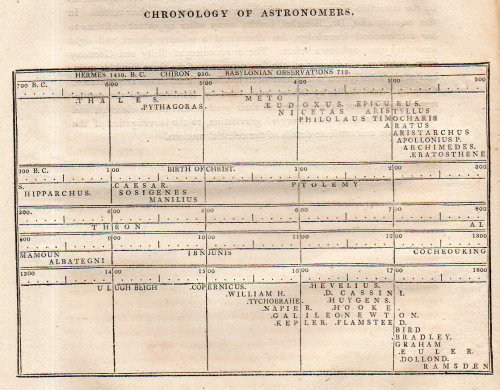 CHRONOLOGY OF ASTRONOMERS.
HERMES 1450. B. C. CHIRON 920. BABYLONIAN OBSERVATIONS 719.
700 B. C. 600 500 400 300 200
.T H A L E S. METO
.PYTHAGORAS. .EUDOXUS. .EPICURUS.
NICETAS ARISTYLLUS
PHILOLAUS TIMOCHARIS
ARATUS
ARISTARCHUS
APOLLONIUS P.
ARCHIMEDES.
.ERATOSTHENE
200 B. C. 100 BIRTH OF CHRIST. 100 200 300
S. .CAESAR. PTOLEMY
HIPPARCHUS. SOSIGENES
MANILIUS
300. 400 500 600 700 800
THEON AL
800 900 1000 1100 1200 1300
MAMOUN IBNJUNIS COCHEOUKING
ALBATEGNI
1300 1400 1500 1600 1700 1800
ULUGH BEIGH .COPERNICUS. .HEVELIUS.
.WILLIAM H. .D. CASSINI.
.TYCHOBRAHE. .HUYGENS.
.NAPIER. .HOOKE.
.GALILEO .NEWTON.
.KEPLER. .FLAMSTEED.
BIRD
.BRADLEY.
GRAHAM
.EULER.
.DOLLOND.
RAMSDEN